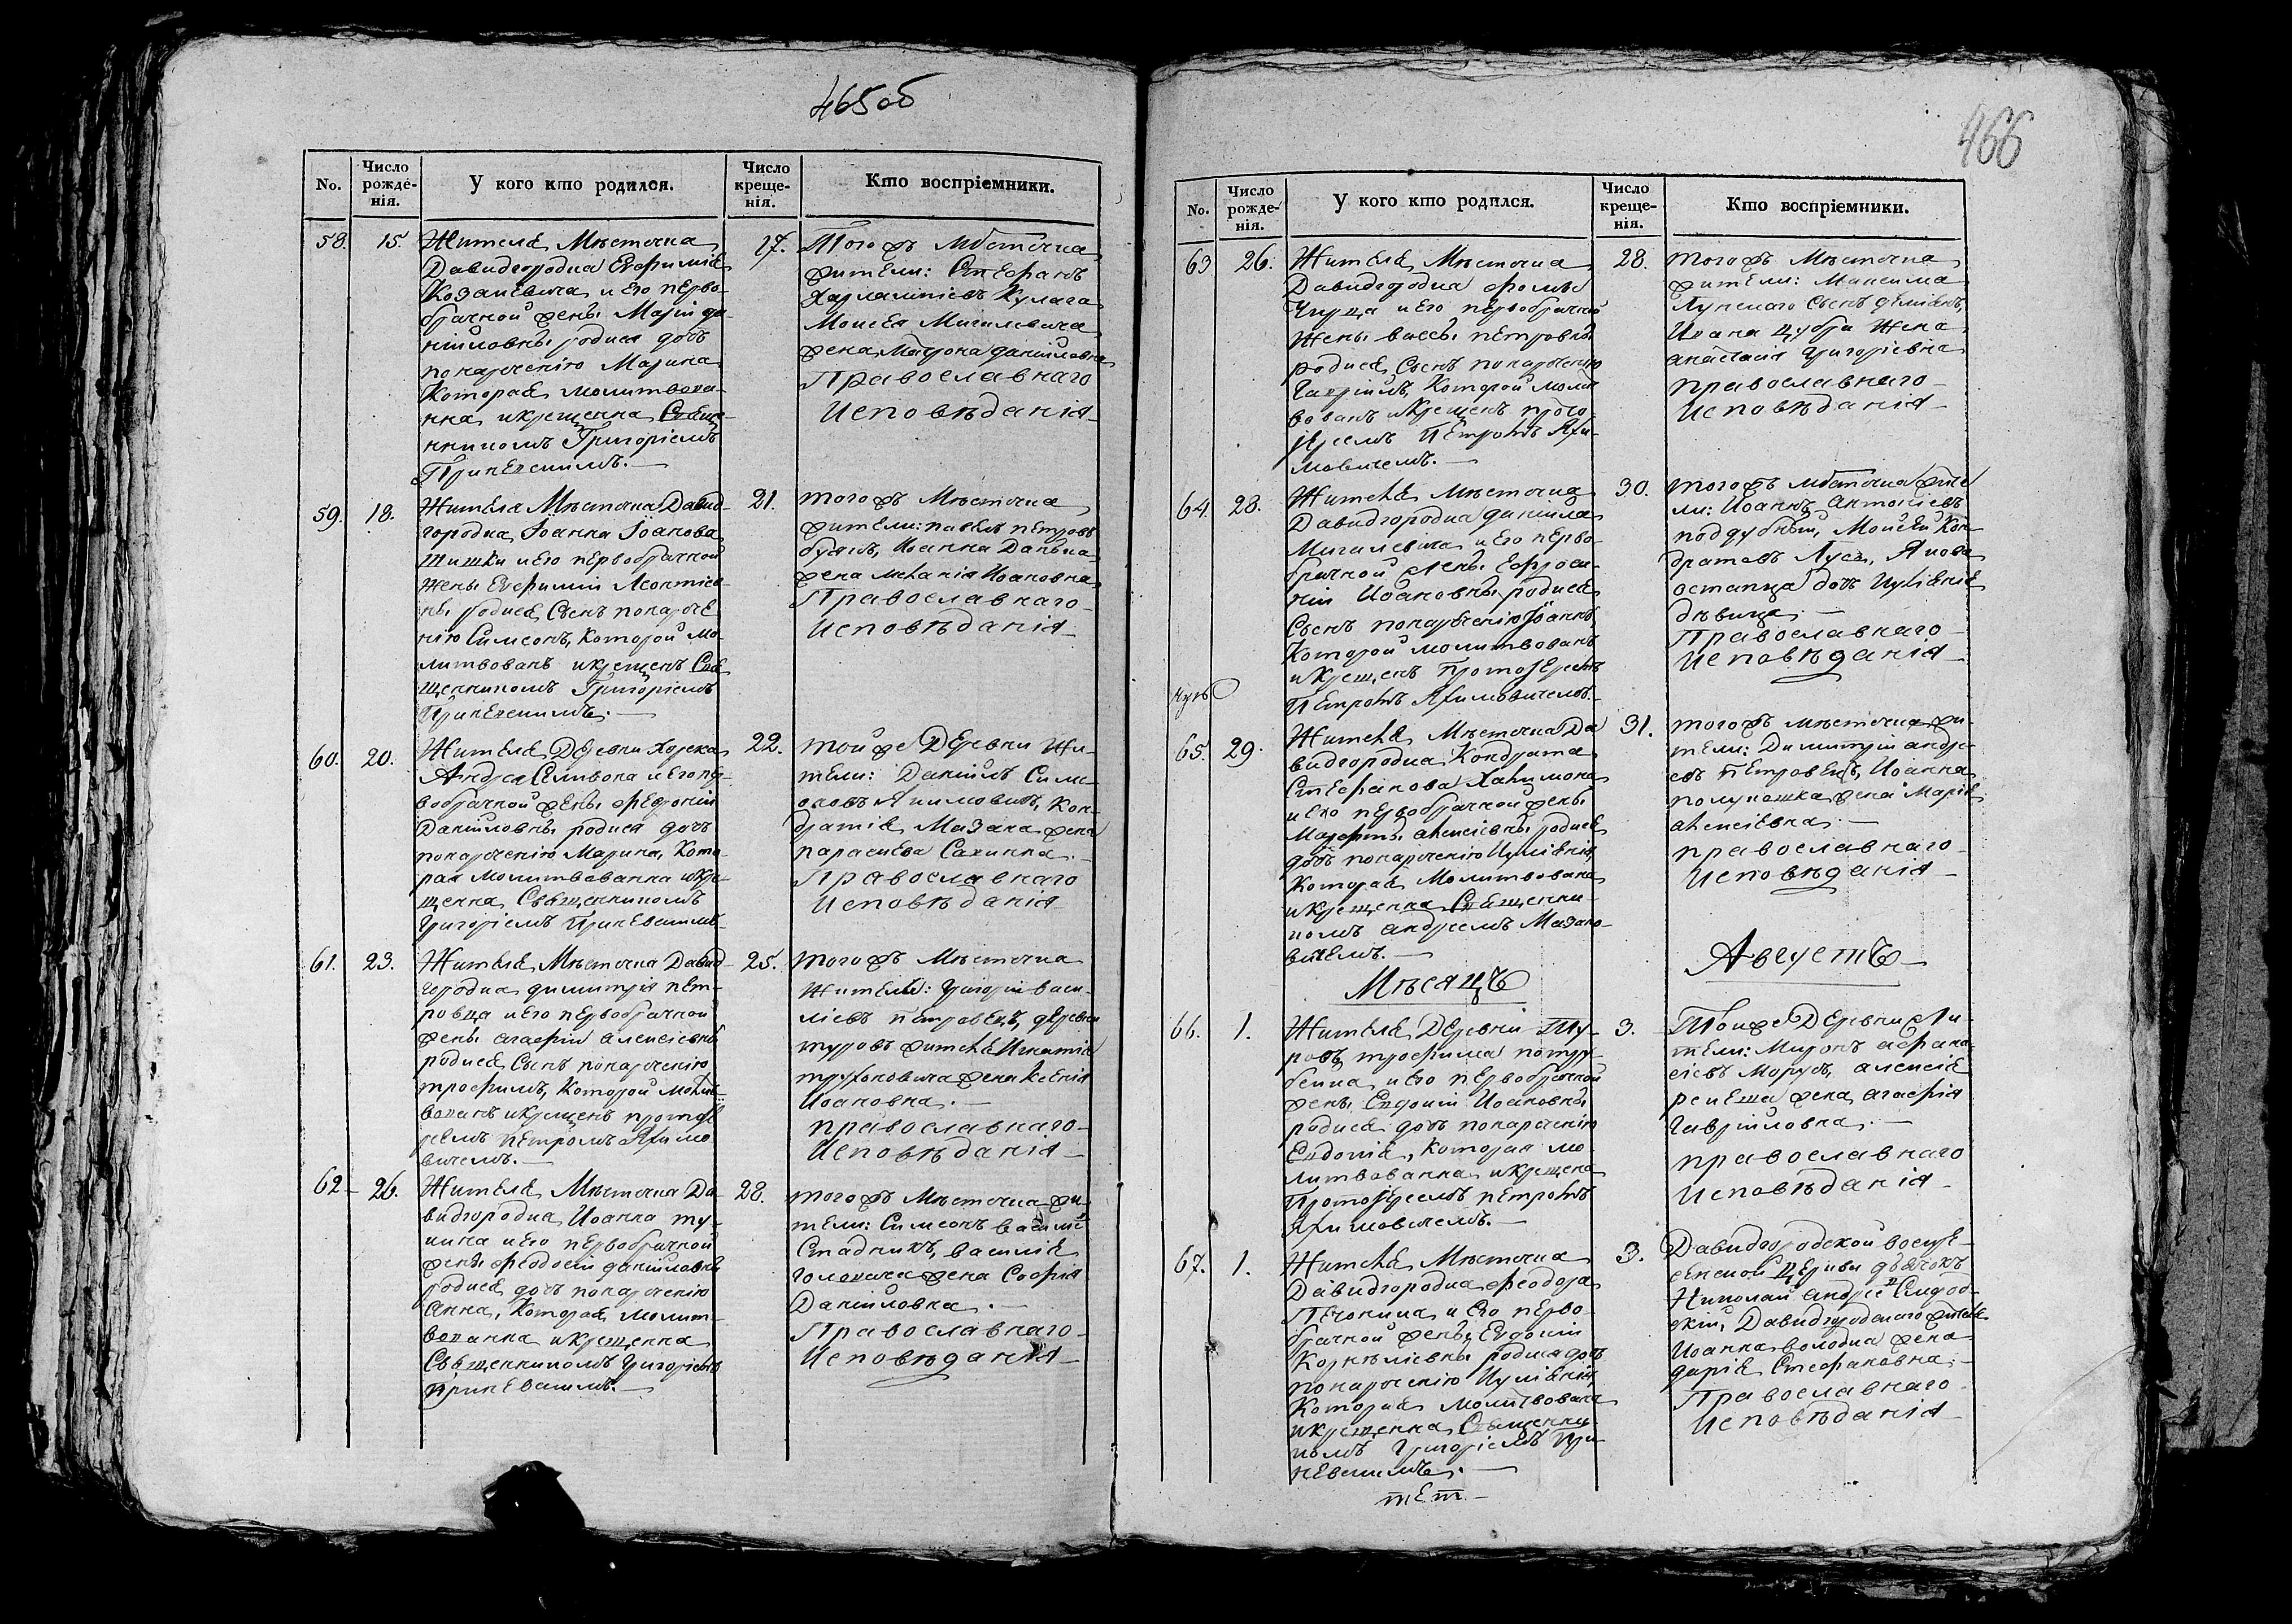 465об
No.
Число рожде-нія.
У кого кто родился.
Число креще-нія.
Кто воспріемники.
58.
15.
Жителя Мѣстечка
Давидгородка Евфиміа
Козачевича и его перво-
брачной жены Маріи да-
ніиловны родися дочь
понареченію Марина
Которая молитвова-
нна икрещенна Свѣще-
нникомъ Григоріемъ
17.
Того жъ Мѣстечка
жители: Стефанъ
Харлампіевъ Кулага
Моисея Мигалевича
жена Матрона даниловна
Православнаго
Исповѣданія
59.
18.
Жителя Мѣстечка Давид-
городка Іоанна Іоанова
Шишки иего первобрачной
жены Евфиміи Леонтіев-
ны родися Сынъ понарече
нію Симеонъ, Которой мо-
литвованъ икрещенъ Свѣ
щенникомъ Григоріемъ
21.
того жъ Мѣстечка
жители: павелъ петровъ
Иоанна
жена мелания Иоановна
Православнаго
Исповѣданія
60.
20.
Жителя Деревни Хорска
Андрея Селивона и его пер-
вобрачной жены Февроніи
Даніиловны родися дочь
понареченію Марина, Кото-
рая Молитвованна икре-
щенна Свѣщенникомъ
Григоріемъ
22.
той же Деревни Жи-
тели: Даніилъ Симе-
оновъ Якимовичъ, Кон-
дратія Мазана жена
параскева Савинна.
Православнаго
Исповѣданія
61.
23.
Жителя Мѣстечка Давид-
городка димитрія пет-
ровца иего первобрачной
жены агафіи алексіевны
родися Сынъ понареченію
трофимъ, Которой молит-
вованъ икрещенъ протоіе
реемъ петромъ Якимо
вичемъ.
25.
того жъ Мѣстечка
Жители: Григорій васи-
ліевъ петровецъ, деревни
туровъ жителя Игнатія
труханович жена Ксенія
Иоановна.
православнаго
Исповѣданія
62
26.
Жителя Мѣстечка Да-
видгородка, Иоанна ту-
 иего первобрачной
жены Феодосіи даніиловны
родися дочь понареченію
Анна, Которая молит-
вованна икрещенна
Свѣщенникомъ Григоріемъ
28.
того жъ Мѣстечка жи-
тели: Симеонъ василіе
Стадникъ, василія
жена Софія
Даніиловна.
Православнаго
Исповѣданія
466
No.
Число рожде-нія.
У кого кто родился.
Число креще-нія.
Кто воспріемники.
63
26.
Жителя Мѣстечка
Давидгородка Фомы
 иего первобрачной
Жены вассы петровны
родися Сынъ понареченію
Гавріилъ, Которой молит
вованъ икрещенъ прото
іереемъ Петромъ Яки-
мовичемъ.
28.
того жъ Мѣстечка
жители: Максима
Лунскаго Сынъ
Ивана Цубры Жена
анастасія Григоріевна
православнаго
Исповѣданія
64.
28.
Жителя Мѣстечка
Давидгородка даніила
Мигалевича иего перво-
брачной жены Ефроси-
ніи Иоановны родися
Сынъ понареченію Іоаннъ,
Которой молитвованъ
икрещенъ Протоіереемъ
Петромъ Якимовичемъ.
30.
того жъ мѣстечка жите
ли: Иоаннъ Антоніевъ
поддубный, Моисей Кон-
дратовъ Лусъ, Якова
остапца дочь Иуліанія
дѣвица.
Православнаго
Исповѣданія
65.
29.
Жителя Мѣстечка Да
видгородка Кондрата
Стефанова Халимона
иего первобрачной жены
Марфы алексіевны родися
дочь понареченію Иуліанія,
Которая Молитвована
икрещенна Свѣщенни-
комъ андреемъ Мазано-
вичемъ.
31.
того жъ мѣстечка жи-
тели: Димитрій андре-
евъ петровецъ, Иоанна
полукошка жена Марія
алексіевна.
православнаго
Исповѣданія
Мѣсяцъ
Августъ
66.
1.
Жителя Деревни Ту-
ровъ трофима
 иего первобрачной
жены Евдокіи Иоановны
родися дочь понареченію
Евдокія, Которая мо-
литвованна икрещена
Протоіереемъ петромъ
Якимовичемъ.
3.
Тойже Деревни Жи-
тели: Миронъ афана-
сіевъ Морусъ, алексія
жена агафія
Гавріиловна.
православнаго
Исповѣданія
67.
1.
Жителя Мѣстечка
Давидгородка Феодора
Печонина и его перво-
брачной жены Евдокіи
Корнеліевны родися дочь
понареченію Иуліанія,
Которая Молитвована
икрещенна Свѣщенни-
комъ Григоріемъ
3.
Давидгородской воскре-
сенской Церкви дьячокъ
Николай андрее
 Давидгородскаго жителя
Иоанна володка жена
дарія Стефановна.
Православнаго
Исповѣданія